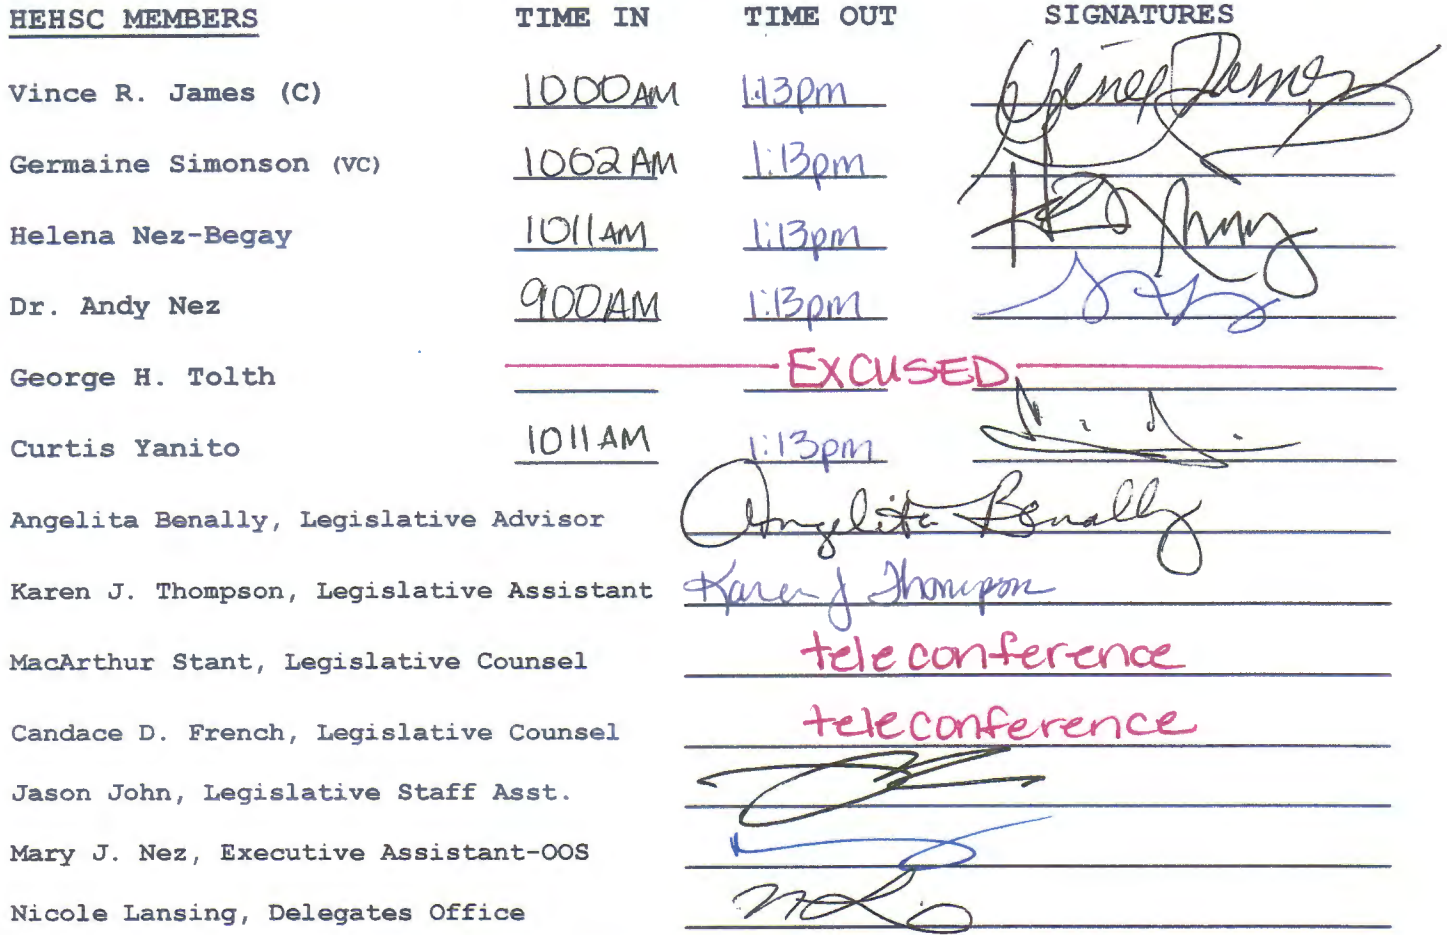 HEHSC MEMBERS TIME IN TIME OUT SIGNATURES
Vince R. James (C) 1000AM 1:13pm Vince James
Germaine Simonson (VC) 1002AM 1:13pm
Helena Nez-Begay 1011AM 1:13pm
Dr. Andy Nez 900AM 1:13pm
George H. Tolth EXCUSED
Curtis Yanito 1011AM 1:13pm
Angelita Benally, Legislative Advisor Angelita Benally
Karen J. Thompson, Legislative Assistant Karen J Thompson
MacArthur Stant, Legislative Counsel teleconference
Candace D. French, Legislative Counsel teleconference
Jason John, Legislative Staff Asst.
Mary J. Nez, Executive Assistant-OOS
Nicole Lansing, Delegates Office